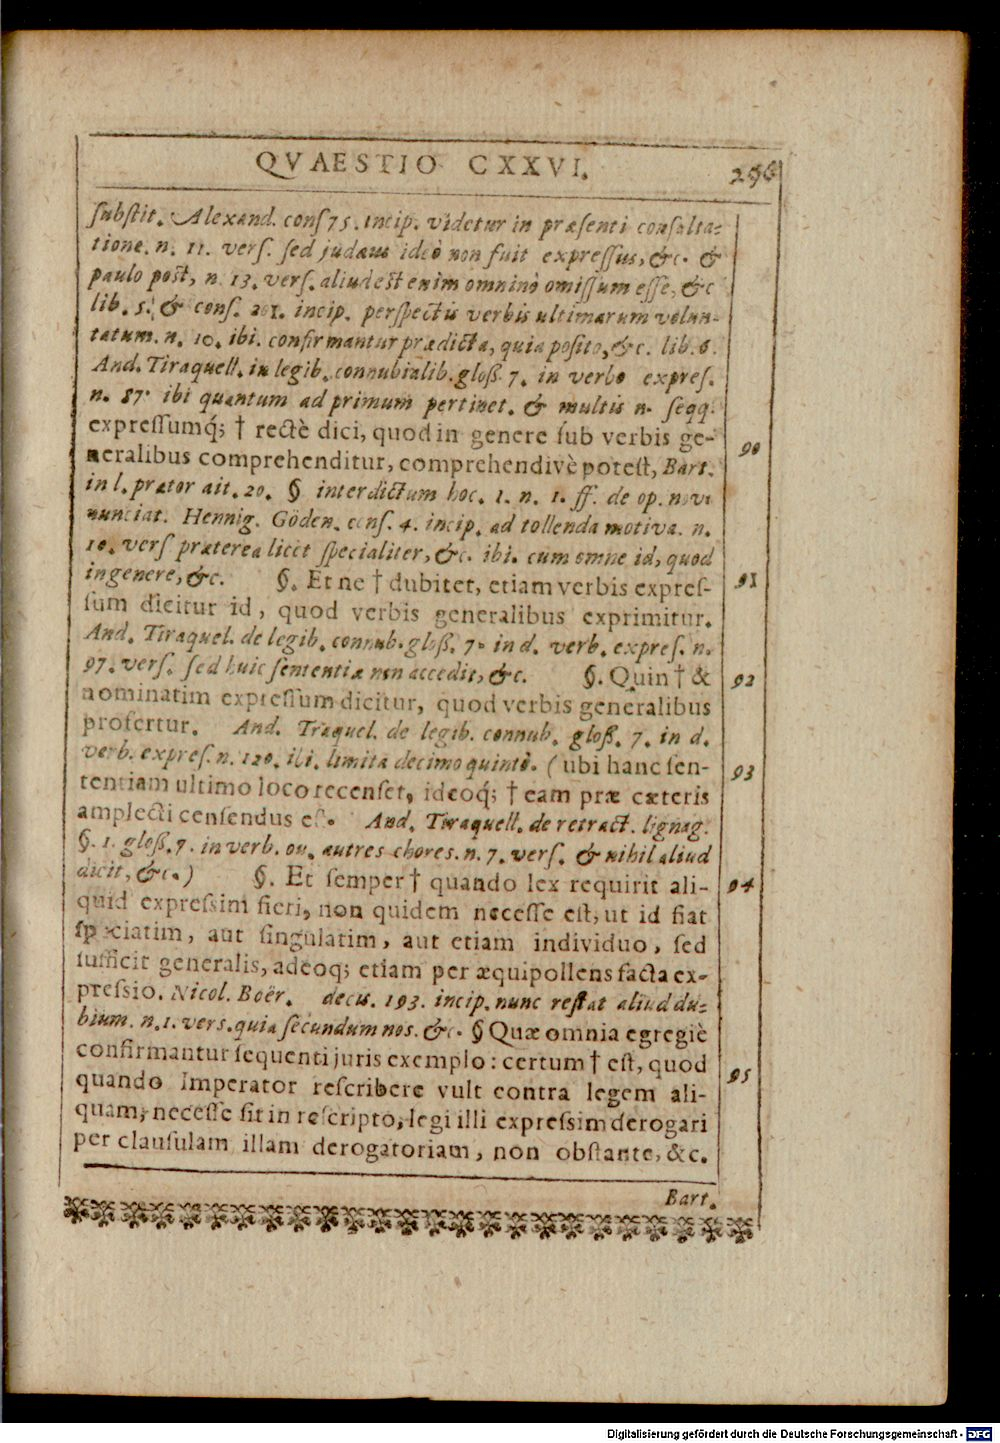 QVAESTIO CXXVI. 296
ſubſtit. Alexand. conſ 75. incip. videtur in præſenti conſulta-
tione. n. 11. verſ. ſed judæus ideò non fuit expreſſus, &c. &
paulo poſt, n. 13. verſ. aliud eſt enim omninò omiſſum eſſe, &c
lib. 5. & conſ. 201. incip. perſpectis verbis ultimarum volun-
tatum. n. 10. ibi. confirmantur prædicta, quia poſito, &c. lib. 6.
And. Tiraquell. in legib. connubialib. gloß. 7. in verbo expreſ.
n. 87. ibi quantum ad primum pertinet. & multis n. ſeqq.
expreſſumq́; † rectè dici, quod in genere ſub verbis ge- 90
neralibus comprehenditur, comprehendivè poteſt, Bart.
in l. prætor ait. 20. § interdictum hoc. 1. n. 1. ff. de op. novi
nunciat. Hennig. Göden. conſ. 4. incip. ad tollenda motiva. n.
10. verſ præterea licet ſpecialiter, &c. ibi. cum omne id, quod
in genere, &c. §. Et ne † dubitet, etiam verbis expreſ- 91
ſum dicitur id, quod verbis generalibus exprimitur.
And. Tiraquel. de legib. connub. gloß. 7. in d. verb. expreſ. n.
97. verſ. ſed huic ſententiæ non accedit, &c. §. Quin † & 92
nominatim expreſſum dicitur, quod verbis generalibus
profertur. And. Traquel. de legib. connub. gloß. 7. in d.
verb. expreſ. n. 120. ibi. limita decimo quintò. ( ubi hanc ſen-
tentiam ultimo loco recenſet, ideoq́; † eam præ cæteris 93
amplecti cenſendus eſt. And. Tiraquell. de retract. lignag.
§. 1. gloß. 7. in verb. ou, autres choſes. n. 7. verſ. & nihil aliud
dicit, &c.) §. Et ſemper † quando lex requirit ali- 94
quid expreſſim fieri, non quidem neceſſe eſt, ut id fiat
ſpeciatim, aut ſingulatim, aut etiam individuo, ſed
ſufficit generalis, adeoq; etiam per æquipollens facta ex-
preſſio. Nicol. Boër. decis. 193. incip. nunc reſtat aliud du-
bium. n. 1. vers. quia ſecundum nos. &c. § Quæ omnia egregiè
confirmantur ſequenti juris exemplo: certum † eſt, quod 95
quando Imperator reſcribere vult contra legem ali-
quam, neceſſe ſit in reſcripto, legi illi expreſſim derogari
per clauſulam illam derogatoriam, non obſtante, &c.
Bart.
Digitalisierung gefördert durch die Deutsche Forschungsgemeinschaft - DFG